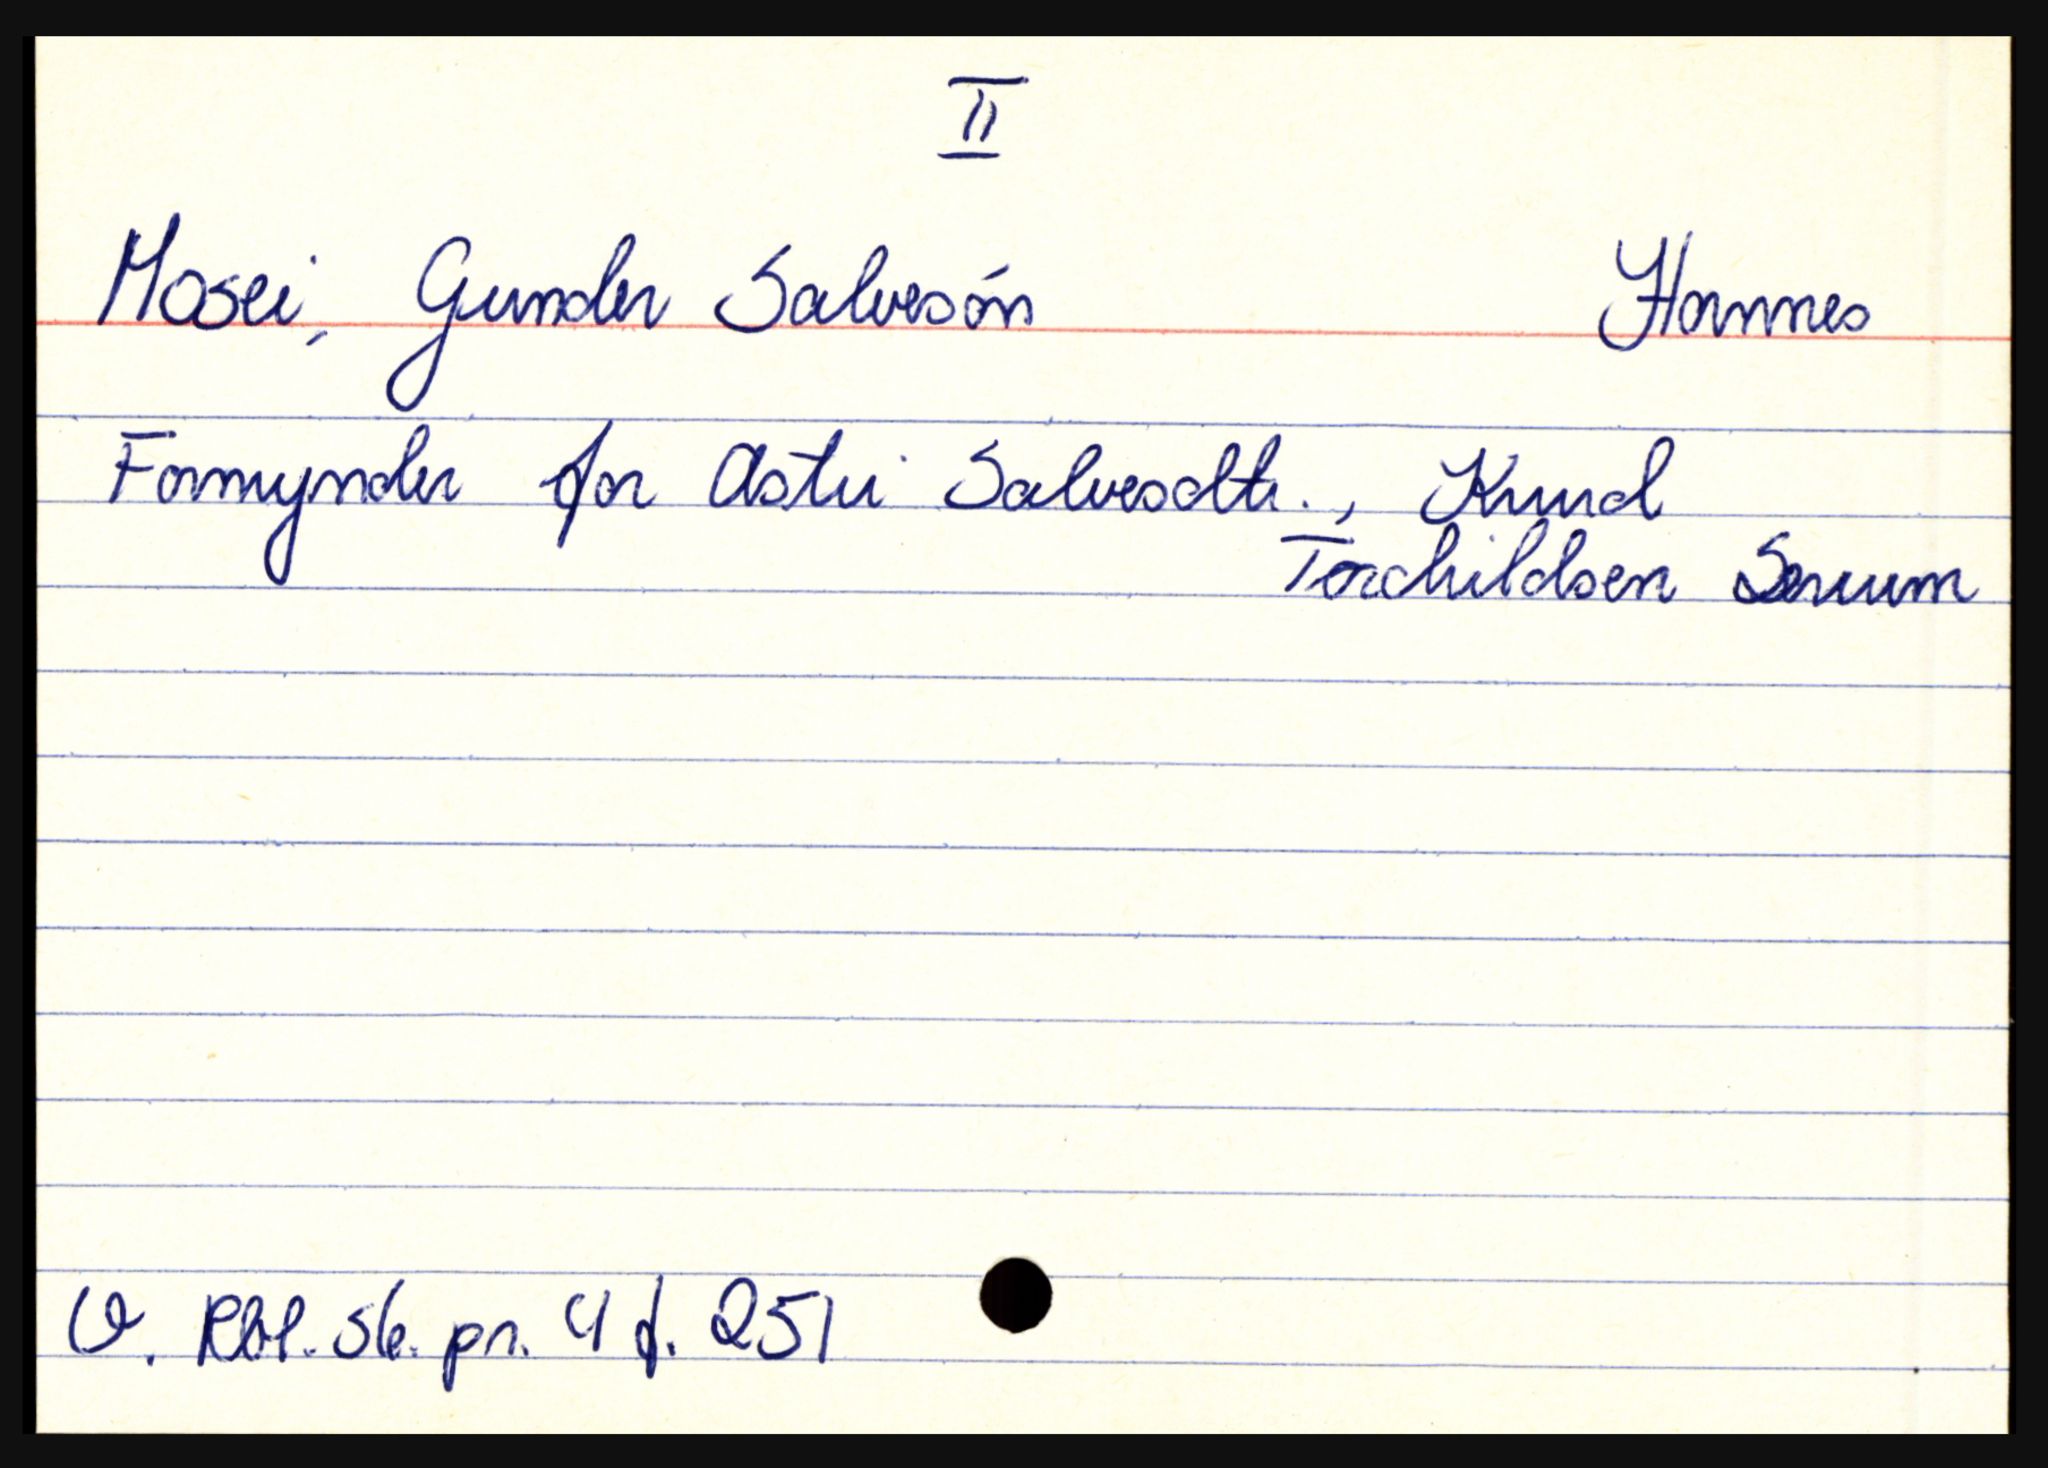 II
Mosei, Gunder Salvesøn Hornnes
Formynder for Astri Salvesdtr., Knud
Torchildsen Senum
V. Rbl. sk. pr. 4 f. 251